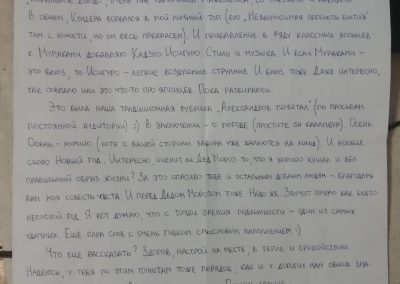 В общем, Кундера ворвался в мой личный топ (его „Невыносимая легкость бытия"
там с юности, но он весь прекрасен). И прибавление в ряду классных японцев
к Мураками добавляю Кадзуо Исигуро. Стиль и музыка. И если Мураками –
это блюз, то Исигуро – легкие воздушные струнные. И блюз тоже. Даже интересно,
так совпало или это что-то про японцев. Пока разбираюсь.
Это была наша традиционная рубрика „Александров почитал" (по просьбам
постоянной аудитории) :) В заключении – о погоде (простите за каламбур). Осень.
Осень – хорошо (хотя с вашей стороны забора уже жалуются на холод). И вообще
скоро Новый год. Интересно оценит ли Дед Мороз то, что я хорошо кушал и вел
правильный образ жизни? За это спасибо тебе и остальным добрым людям – благодаря
вам моя совесть чиста. И перед Дедом Морозом тоже. Надо же. Звучит прямо как будто
неплохой год. Я вот думаю, что с точки зрения подлинности – один из самых
удачных. Еще пара слов с очень гибким смысловым наполнением :)
Что еще рассказать? Здоров, настрой на месте, в тепле и спокойствии.
Надеюсь, у тебя по этим пунктам тоже порядок, как и у дорогих нам общих зна-